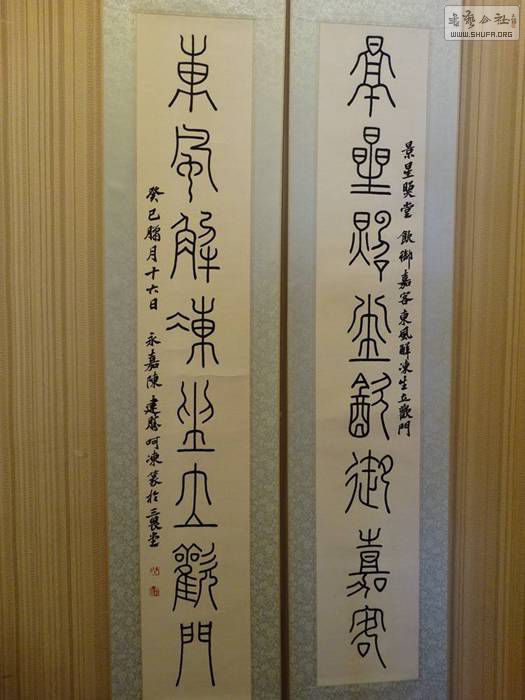 書藝公社
WWW.SHUFA.ORG
景星照堂飲御嘉客
景星照堂 飲御嘉客東風解凍坐立歡門
東風解凍坐立歡門
癸巳臘月十六日 永嘉陳建呵凍篆於三畏堂